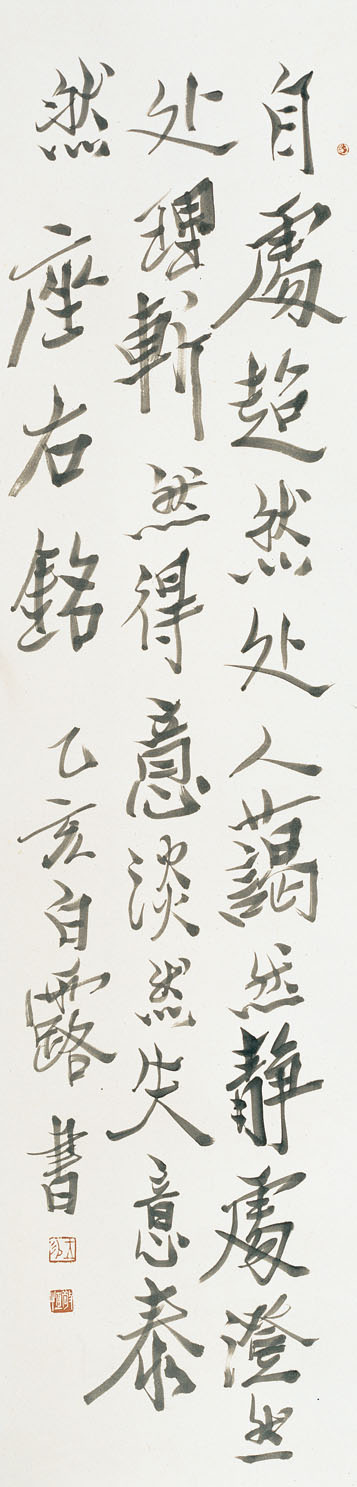 自處超然处人藹然静處澄然
处理斬然得意淡然失意泰
然座右銘乙亥白露書